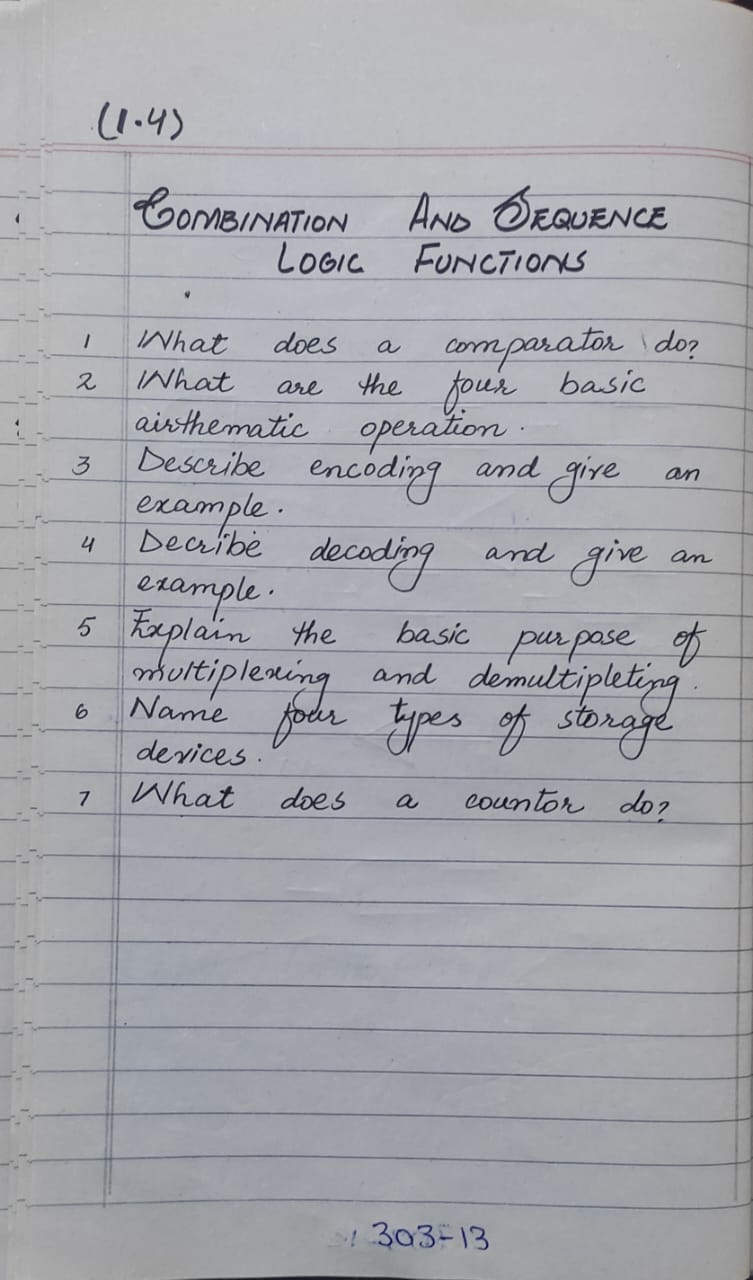 (1.4)
COMBINATION AND SEQUENCE
LOGIC FUNCTIONS
1 What does a comparator do?
2 What are the four basic
airthematic operation.
3 Describe encoding and give an
example.
4 Decribe decoding and give an
example.
5 Explain the basic purpose of
multiplexing and demultipleting.
6 Name four types of storage
devices.
7 What does a countor do?
303-13